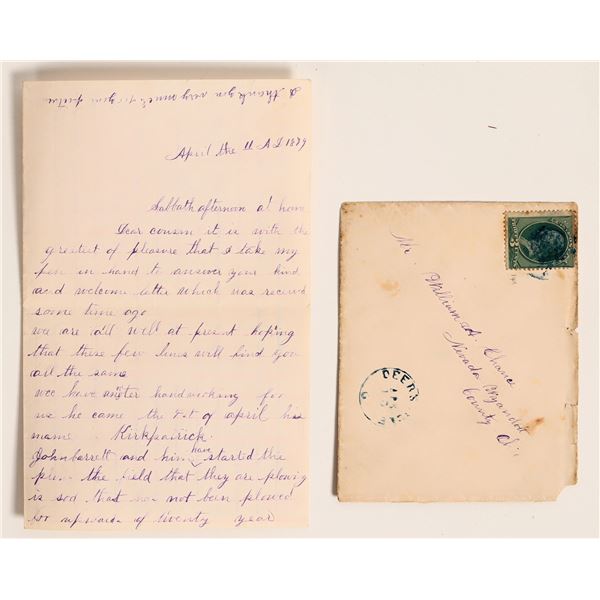 I thank you very much for your picture
April the 11 A D 1879
Sabbath afternoon at home
Dear cousin it is with the
greatest of pleasure that I take my
pen in hand to answer your kind
and welcome letter which was received
some time ago
we are all well at present hoping
that these few lines will find you
all the same
wee have another hand working for
us he came the 1st of april his
name Kirkpatrick
John barrett and him have started the
plow the field that they are plowing
is sod that has not been plowed
for upwards of twenty year
Mr. William A. Chance
Nevada Wyandott
County O
DEER